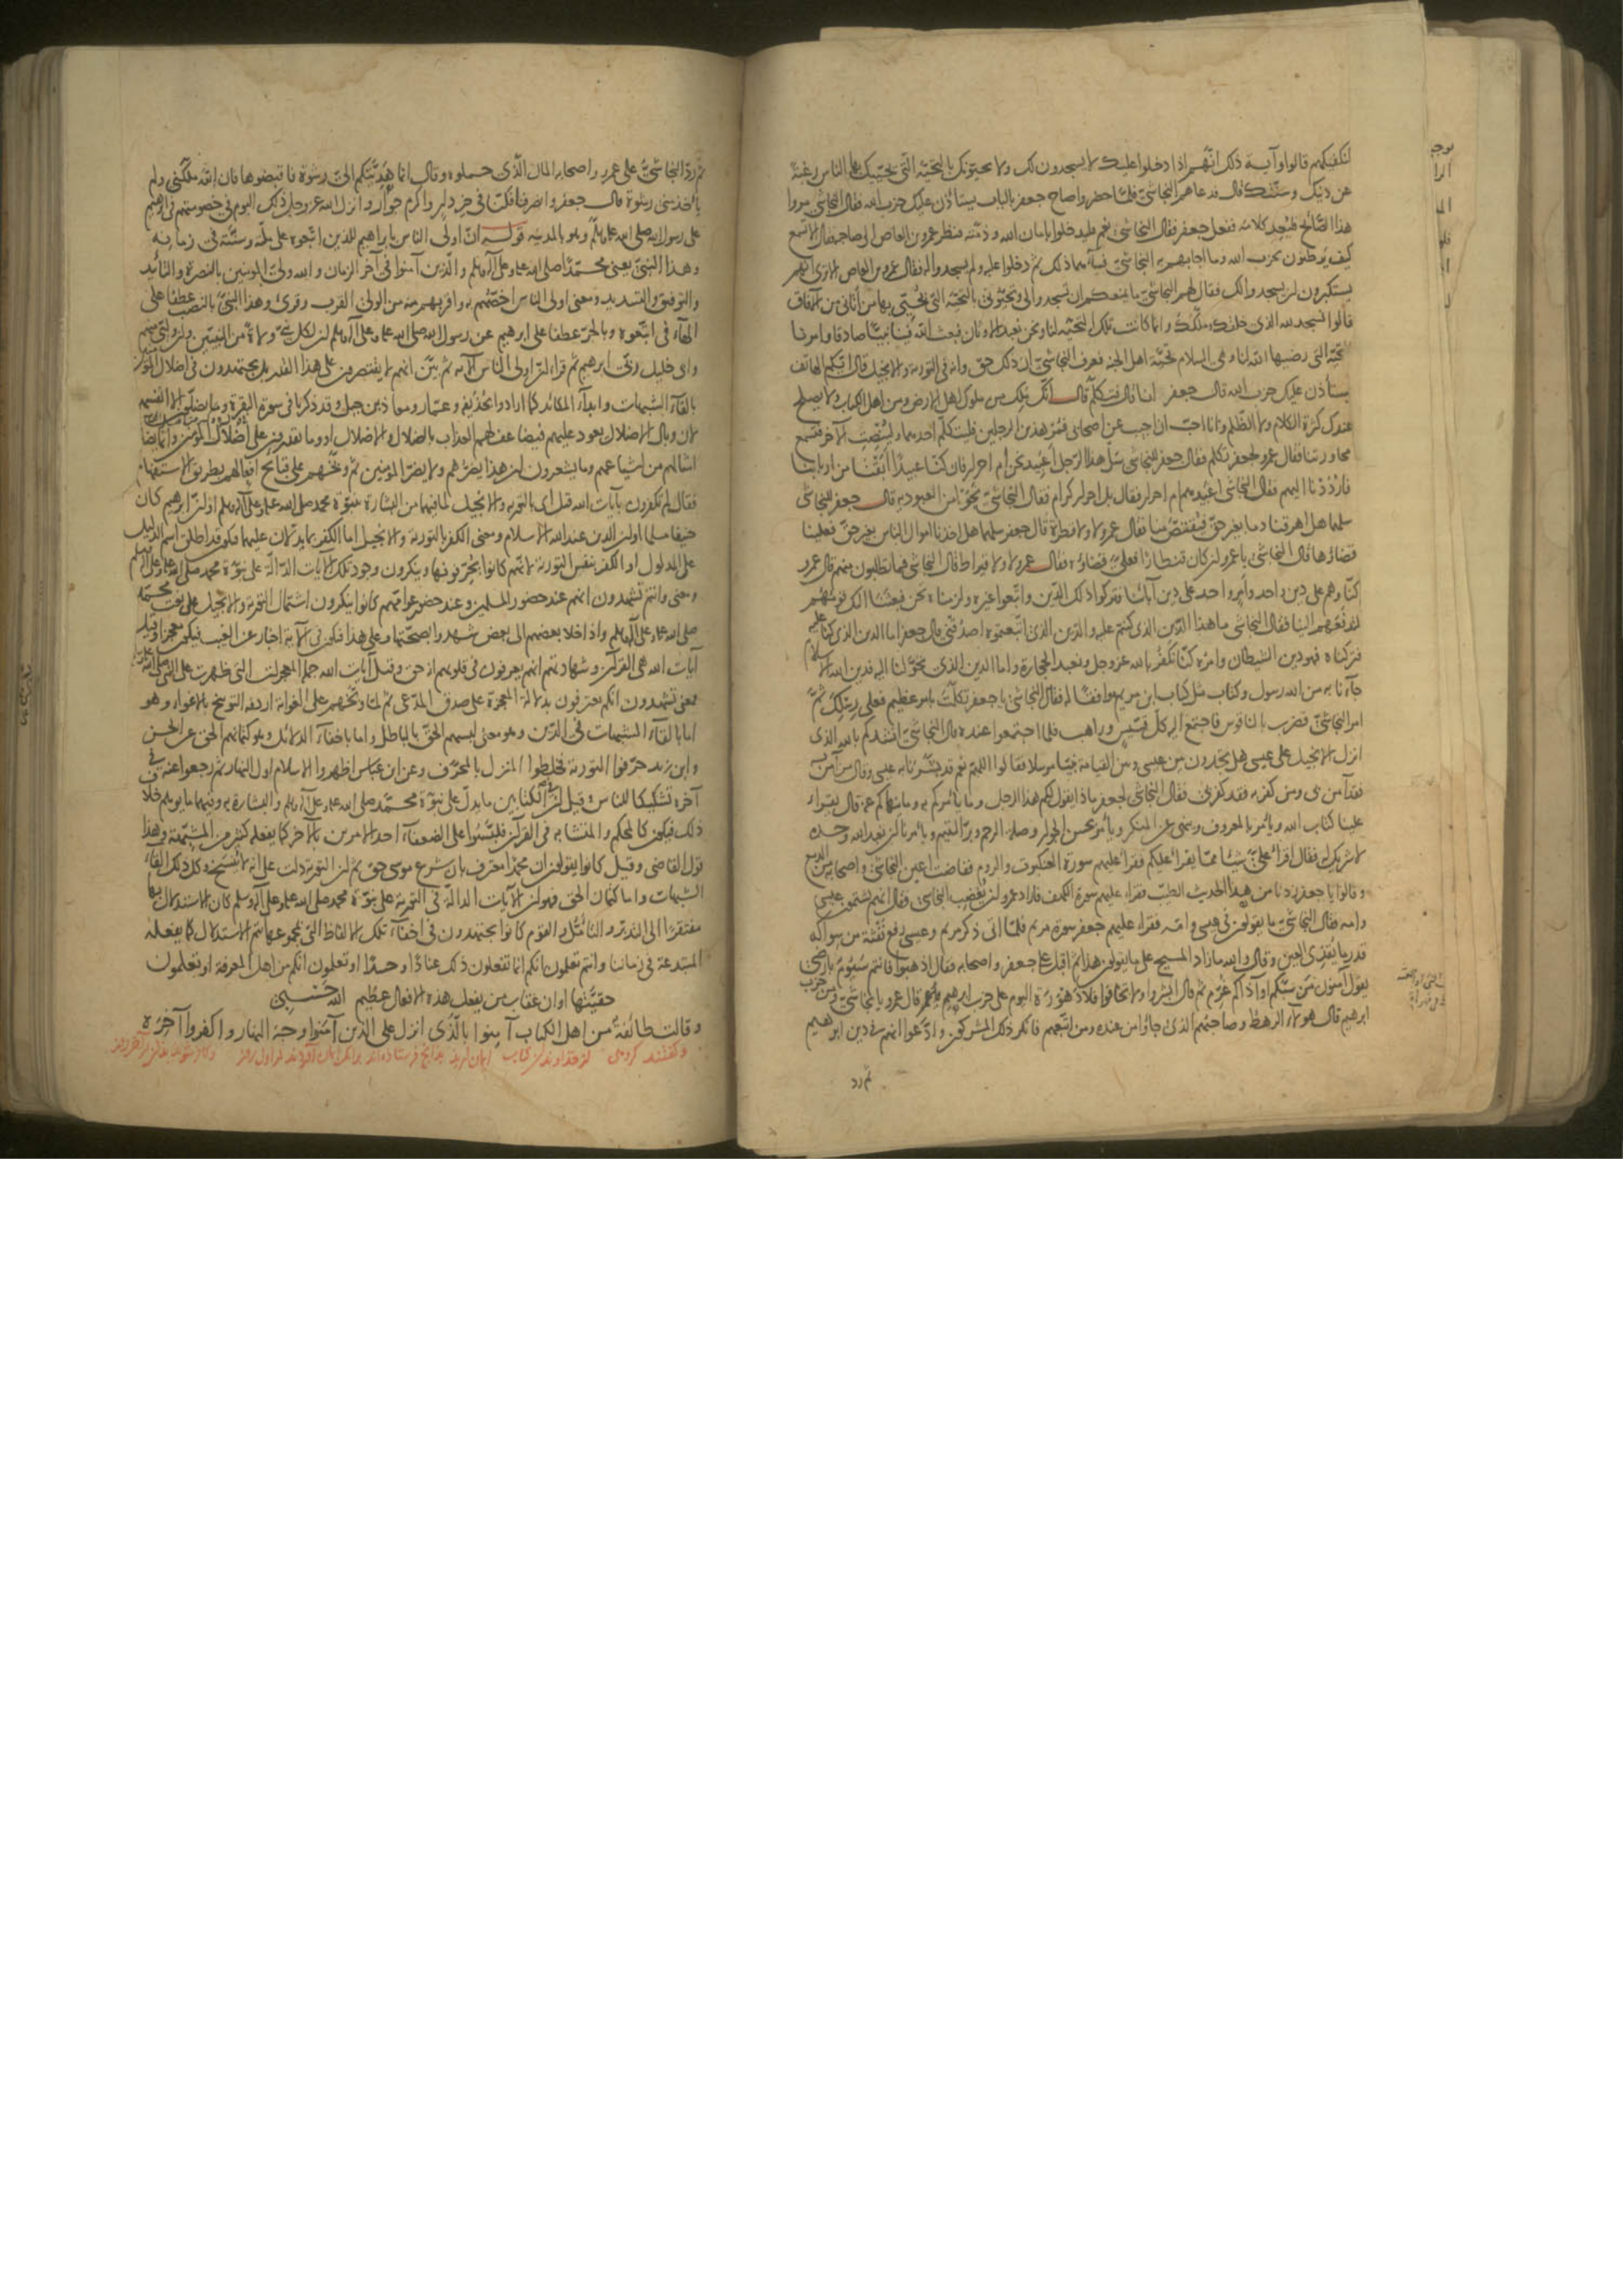 لنكفيكهم قالوا وآية ذلك انهم اذا دخلوا عليك لا يسجدون لك ولا يحيونك بالتحية التي يحييك بها الناس رغبة
عن دينك وسنتك قال فدعاهم النجاشي فلما حضروا صاح جعفر بالباب يستأذن عليك حزب الله فقال النجاشي مروا
هذا الصائح فليعد كلامه ففعل جعفر فقال النجاشي نعم فليدخلوا بامان الله وذمته فنظر عمرو بن العاص الى صاحبه فقال الا تسمع
كيف يرطنون بحزب الله وما اجابهم به النجاشي فساءهما ذلك ثم دخلوا عليه ولم يسجدوا له فقال عمرو بن العاص الا ترى انهم
يستكبرون ان يسجدوا لك فقال لهم النجاشي ما يمنعكم ان تسجدوا لي وتحيوني بالتحية التي يحييني بها من أتاني من الآفاق
قالوا نسجد لله الذي خلقك وملكك وانما كانت تلك التحية لنا ونحن نعبد الاوثان فبعث الله فينا نبيا صادقا وامرنا
بالتحية التي رضيها الله لنا وهي السلام تحية اهل الجنة فعرف النجاشي ان ذلك حق وانه في التورية والانجيل قال ايكم الهاتف
يستأذن عليك حزب الله قال جعفر انا قال فتكلم قال انك ملك من ملوك اهل الارض ومن اهل الكتاب ولا يصلح
عندك كثرة الكلام ولا الظلم وانا احب ان اجيب عن اصحابي فمر هذين الرجلين فليتكلم احدهما ولينصت الآخر فتسمع
محاورتنا فقال عمرو لجعفر تكلم فقال جعفر للنجاشي سل هذا الرجل أعبيد نحن ام احرار فان كنا عبيدا ابقنا من اربابنا
فارددنا اليهم فقال النجاشي أعبيد هم ام احرار فقال بل احرار كرام فقال النجاشي نجوا من العبودية قال جعفر للنجاشي
سلهما هل اهرقنا دما بغير حق فيقتص منا فقال عمرو لا ولا قطرة قال جعفر سلهما هل اخذنا اموال الناس بغير حق فعلينا
قضاؤها قال النجاشي يا عمرو ان كان قنطارا فعلي قضاؤه فقال عمرو لا ولا قيراط قال النجاشي فما تطلبون منهم قال عمرو
كنا وهم على دين واحد وأمر واحد على دين آبائنا فتركوا ذلك الدين واتبعوا غيره ولزمناه نحن فبعثنا اليك قومهم
لتدفعهم الينا فقال النجاشي ما هذا الدين الذي كنتم عليه والدين الذي اتبعتموه اصدقني قال جعفر اما الدين الذي كنا عليه
فتركناه فهو دين الشيطان وامره كنا نكفر بالله عز وجل ونعبد الحجارة واما الدين الذي تحولنا اليه فدين الله الاسلام
جاءنا به من الله رسول وكتاب مثل كتاب ابن مريم موافقا له فقال النجاشي يا جعفر تكلمت بامر عظيم فعلى رسلك ثم
امر النجاشي فضرب بالناقوس فاجتمع اليه كل قسيس وراهب فلما اجتمعوا عنده قال النجاشي انشدكم بالله الذي
انزل الانجيل على عيسى هل تجدون بين عيسى وبين القيامة نبيا مرسلا فقالوا اللهم نعم قد بشرنا به عيسى وقال من آمن به
فقد آمن بي ومن كفر به فقد كفر بي فقال النجاشي لجعفر ماذا يقول لكم هذا الرجل وما يأمركم به وما ينهاكم عنه قال يقراء
علينا كتاب الله ويأمر بالمعروف وينهى عن المنكر ويأمر بحسن الجوار وصلة الرحم وبر اليتيم ويأمرنا ان نعبد الله وحده
لا شريك له فقال اقراء علي شيئا مما يقراء عليكم فقراء عليهم سورة العنكبوت والروم ففاضت اعين النجاشي واصحابه من الدمع
وقالوا يا جعفر زدنا من هذا الحديث الطيب فقراء عليهم سورة الكهف فاراد عمرو ان يغضب النجاشي فقال انهم يشتمون عيسى
وامه فقال النجاشي ما يقولون في عيسى وامه فقراء عليهم جعفر سورة مريم فلما اتى ذكر مريم وعيسى رفع نفثة من سواكه
قدر ما يقذي العين وقال والله ما زاد المسيح على ما يقولون هذا ثم اقبل على جعفر واصحابه فقال اذهبوا فانتم سيوم بارضي
يقول آمنون من سبكم او آذاكم غرم ثم قال ابشروا ولا تخافوا فلا دهورة اليوم على حزب ابرهيم قال عمرو يا نجاشي ومن حزب
ابرهيم قال هؤلاء الرهط وصاحبهم الذي جاؤا من عنده ومن اتبعهم فانكر ذلك المشركون وادعوا انهم في دين ابرهيم
ثم رد
ثم رد النجاشي على عمرو واصحابه المال الذي حملوه وقال انما هديتكم الي رشوة فاقبضوها فان الله ملكني ولم
يأخذ مني رشوة قال جعفر وانصرفنا فكنا في خير دار واكرم جوار وانزل الله عز وجل ذلك اليوم في خصومتهم في ابرهيم
على رسول الله صلى الله عليه وسلم وهو بالمدينة قوله ان اولى الناس بابراهيم للذين اتبعوه على ملته وسنته في زمانه
وهذا النبي يعني محمدا صلى الله عليه وعلى آله وسلم والذين آمنوا في آخر الزمان والله ولي المؤمنين بالنصرة والتأييد
والتوفيق والتسديد ومعنى اولى الناس اخصهم به واقربهم منه من الولي القرب وقرئ وهذا النبي بالنصب عطفا على
الهاء في اتبعوه وبالجر عطفا على ابرهيم عن رسول الله صلى الله عليه وعلى آله وسلم ان لكل نبي ولاة من النبيين وان وليي منهم
ابي وخليل ربي ابرهيم ثم قراء ان اولى الناس الآية ثم بين انهم لا يقتصرون على هذا القدر بل يجتهدون في اضلال المؤمنين
بالقاء الشبهات وابداء المكائد كما ارادوا بحذيفة وعمار ومعاذ بن جبل وقد ذكرنا في سورة البقرة وما يضلون الا انفسهم
لان وبال الاضلال يعود عليهم فيضاعف لهم العذاب بالضلال والاضلال او وما يقدرون على اضلال المؤمنين وانما يضلون
امثالهم من اشياعهم وما يشعرون ان هذا يضرهم ولا يضر المؤمنين ثم وبخهم على قبائح افعالهم بطريق الاستفهام
فقال لم تكفرون بآيات الله قيل اي بالتورية والانجيل لما فيهما من البشارة بنبوة محمد صلى الله عليه وعلى آله وسلم او ان ابرهيم كان
حنيفا مسلما او ان الدين عند الله الاسلام ومعنى الكفر بالتورية والانجيل اما الكفر بما يدلان عليه فيكون قد اطلق اسم الدليل
على المدلول او الكفر بنفس التورية لانهم كانوا يحرفونها وينكرون وجود تلك الآيات الدالة على نبوة محمد صلى الله عليه وعلى آله وسلم
ومعنى وانتم تشهدون انهم عند حضور المسلمين وعند حضور عوامهم كانوا ينكرون اشتمال التورية والانجيل على نعت محمد
صلى الله عليه وعلى آله وسلم واذا خلا بعضهم الى بعض شهدوا بصحتها وعلى هذا فيكون في الآية اخبار عن الغيب فيكون معجزا وقيل
آيات الله هي القرآن وشهادتهم انهم يعرفون في قلوبهم انه حق وقيل آيات الله جملة المعجزات التي ظهرت على النبي صلى الله عليه
ومعنى تشهدون انكم تعترفون بدلالة المعجزة على صدق المدعي ثم لما وبخهم على الغواية اردفه التوبيخ بالاغواء وهو
اما بالقاء الشبهات في الدين وهو معنى لبسهم الحق بالباطل واما باخفاء الدلائل وهو كتمانهم الحق عن الحسن
وابن زيد حرفوا التورية فخلطوا المنزل بالمحرف وعن ابن عباس اظهروا الاسلام اول النهار ثم رجعوا عنه في
آخره تشكيكا للناس وقيل ان في الكتابين ما يدل على نبوة محمد صلى الله عليه وعلى آله وسلم والبشارة به وفيهما ما يوهم خلاف
ذلك فيكون كالمحكم والمتشابه في القرآن فلبسوا على الضعفاء احد الامرين بالآخر كما يفعله كثير من المشبهة وهذا
قول القاضي وقيل كانوا يقولون ان محمدا معترف بان شرع موسى حق ثم ان التورية دلت على انه لا ينسخ وكل ذلك القاء
الشبهات واما كتمان الحق فهو ان الآيات الدالة في التورية على نبوة محمد صلى الله عليه وعلى آله وسلم كان الاستدلال بها
مفتقرا الى التدبر والتأمل والقوم كانوا يجتهدون في اخفاء تلك الالفاظ التي بمجموعها يتم الاستدلال كما يفعله
المبتدعة في زماننا وانتم تعلمون انكم انما تفعلون ذلك عنادا وحسدا او تعلمون انكم من اهل المعرفة او تعلمون
حقيتها او ان عقاب من يفعل هذه الافعال عظيم الله حسبي
وقالت طائفة من اهل الكتاب آمنوا بالذي انزل على الذين آمنوا وجه النهار واكفروا آخره
وگفتند گروهى از خداوندان كتاب ايمان آريد بدانچه فرستاده اند بر آنكه ايمان آوردند در اول روز وكافر شويد